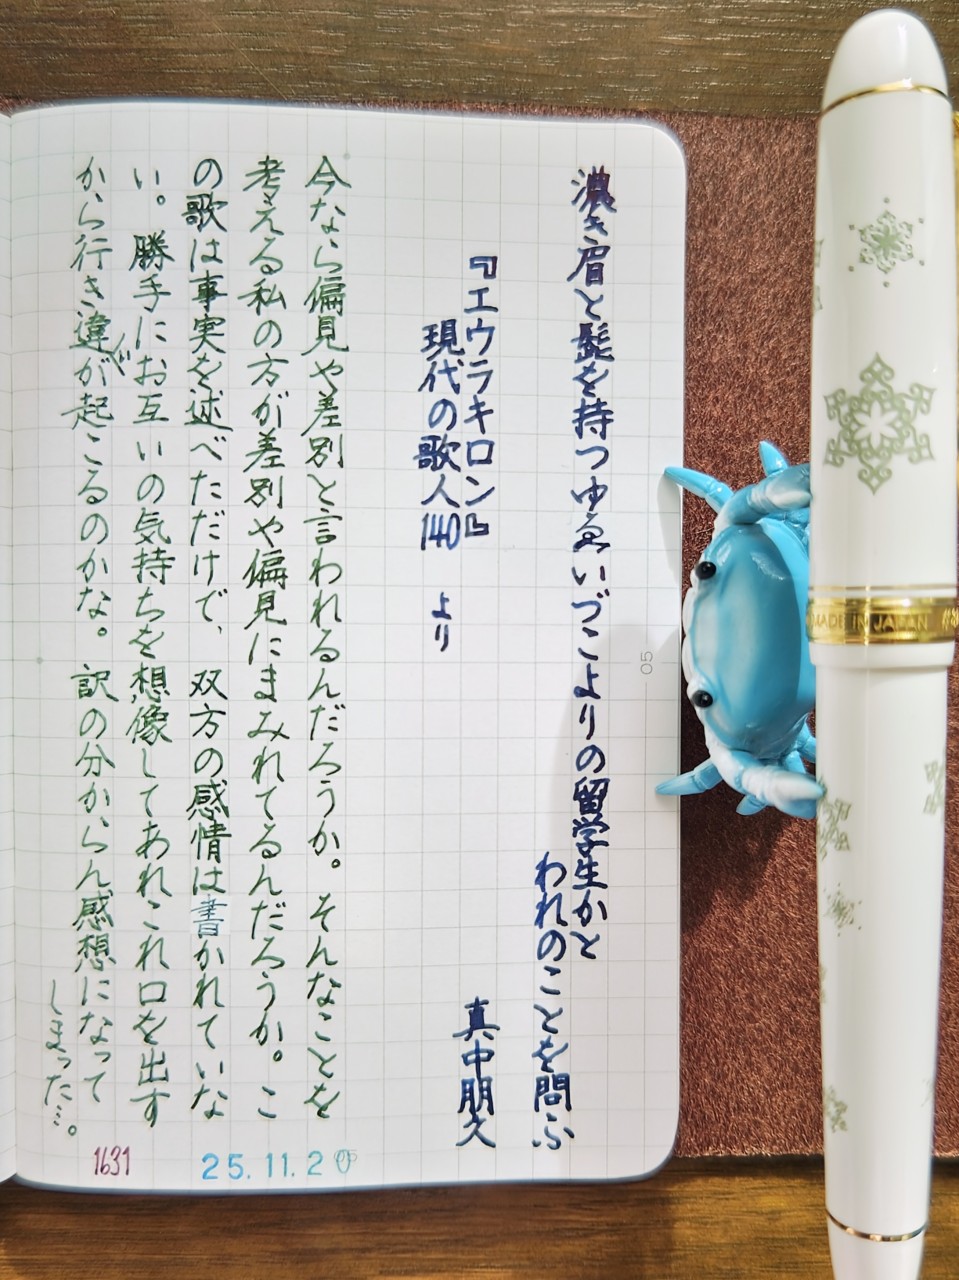 濃き眉と髭を持つゆゑいづこよりの留学生かと
われのことを問ふ
真中朋久
『エウラキロン』
現代の歌人140 より
今なら偏見や差別と言われるんだろうか。そんなことを
考える私の方が差別や偏見にまみれてるんだろうか。こ
の歌は事実を述べただけで、双方の感情は書かれていな
い。勝手にお互いの気持ちを想像してあれこれ口を出す
から行き違いが起こるのかな。訳の分からん感想になって
しまった…。
1631
25.11.2
05
MADE IN JAPAN